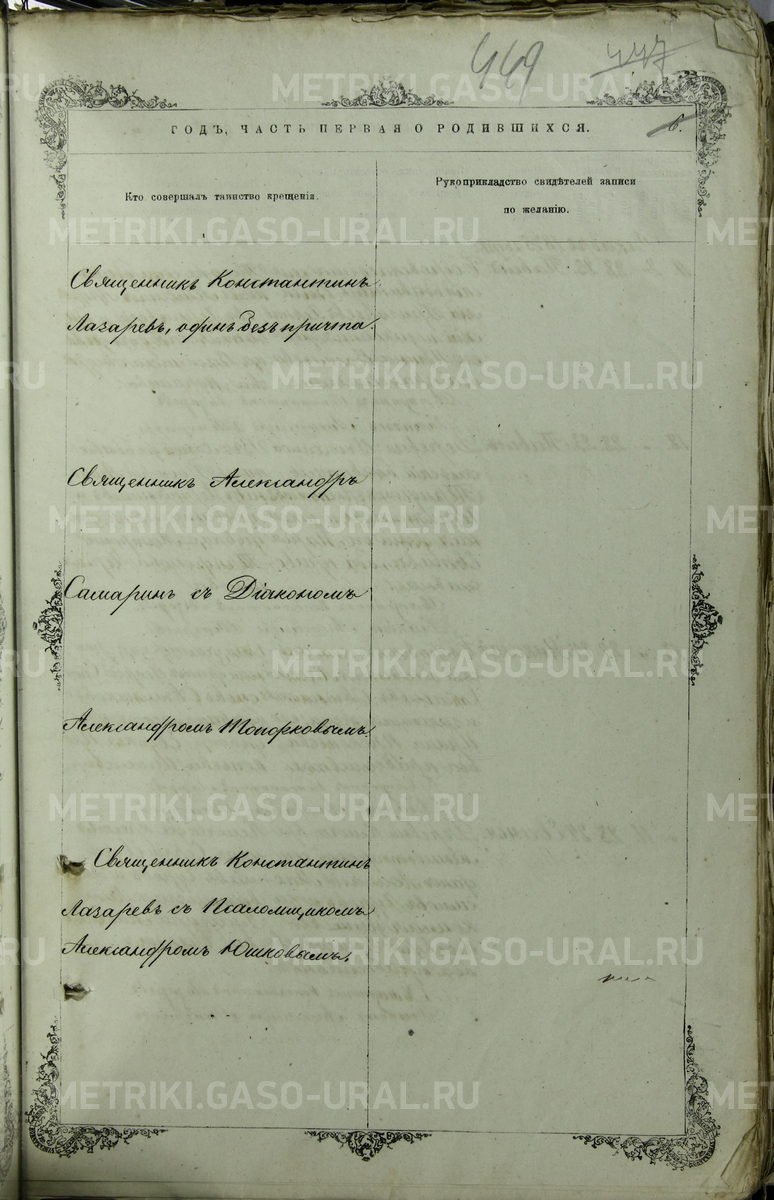 449 447
ГОДЪ, ЧАСТЬ ПЕРВАЯ О РОДИВШИХСЯ. 6.
Кто совершалъ таинство крещенія.
Рукоприкладство свидѣтелей записи
по желанію.
Священникъ Константинъ
Лазаревъ, одинъ безъ причта.
Священникъ Александръ
Самаринъ съ Діакономъ
Александромъ Топорковымъ.
Священникъ Константинъ
Лазаревъ съ Псаломщикомъ
Александромъ Юшковымъ.
METRIKI.GASO-URAL.RU